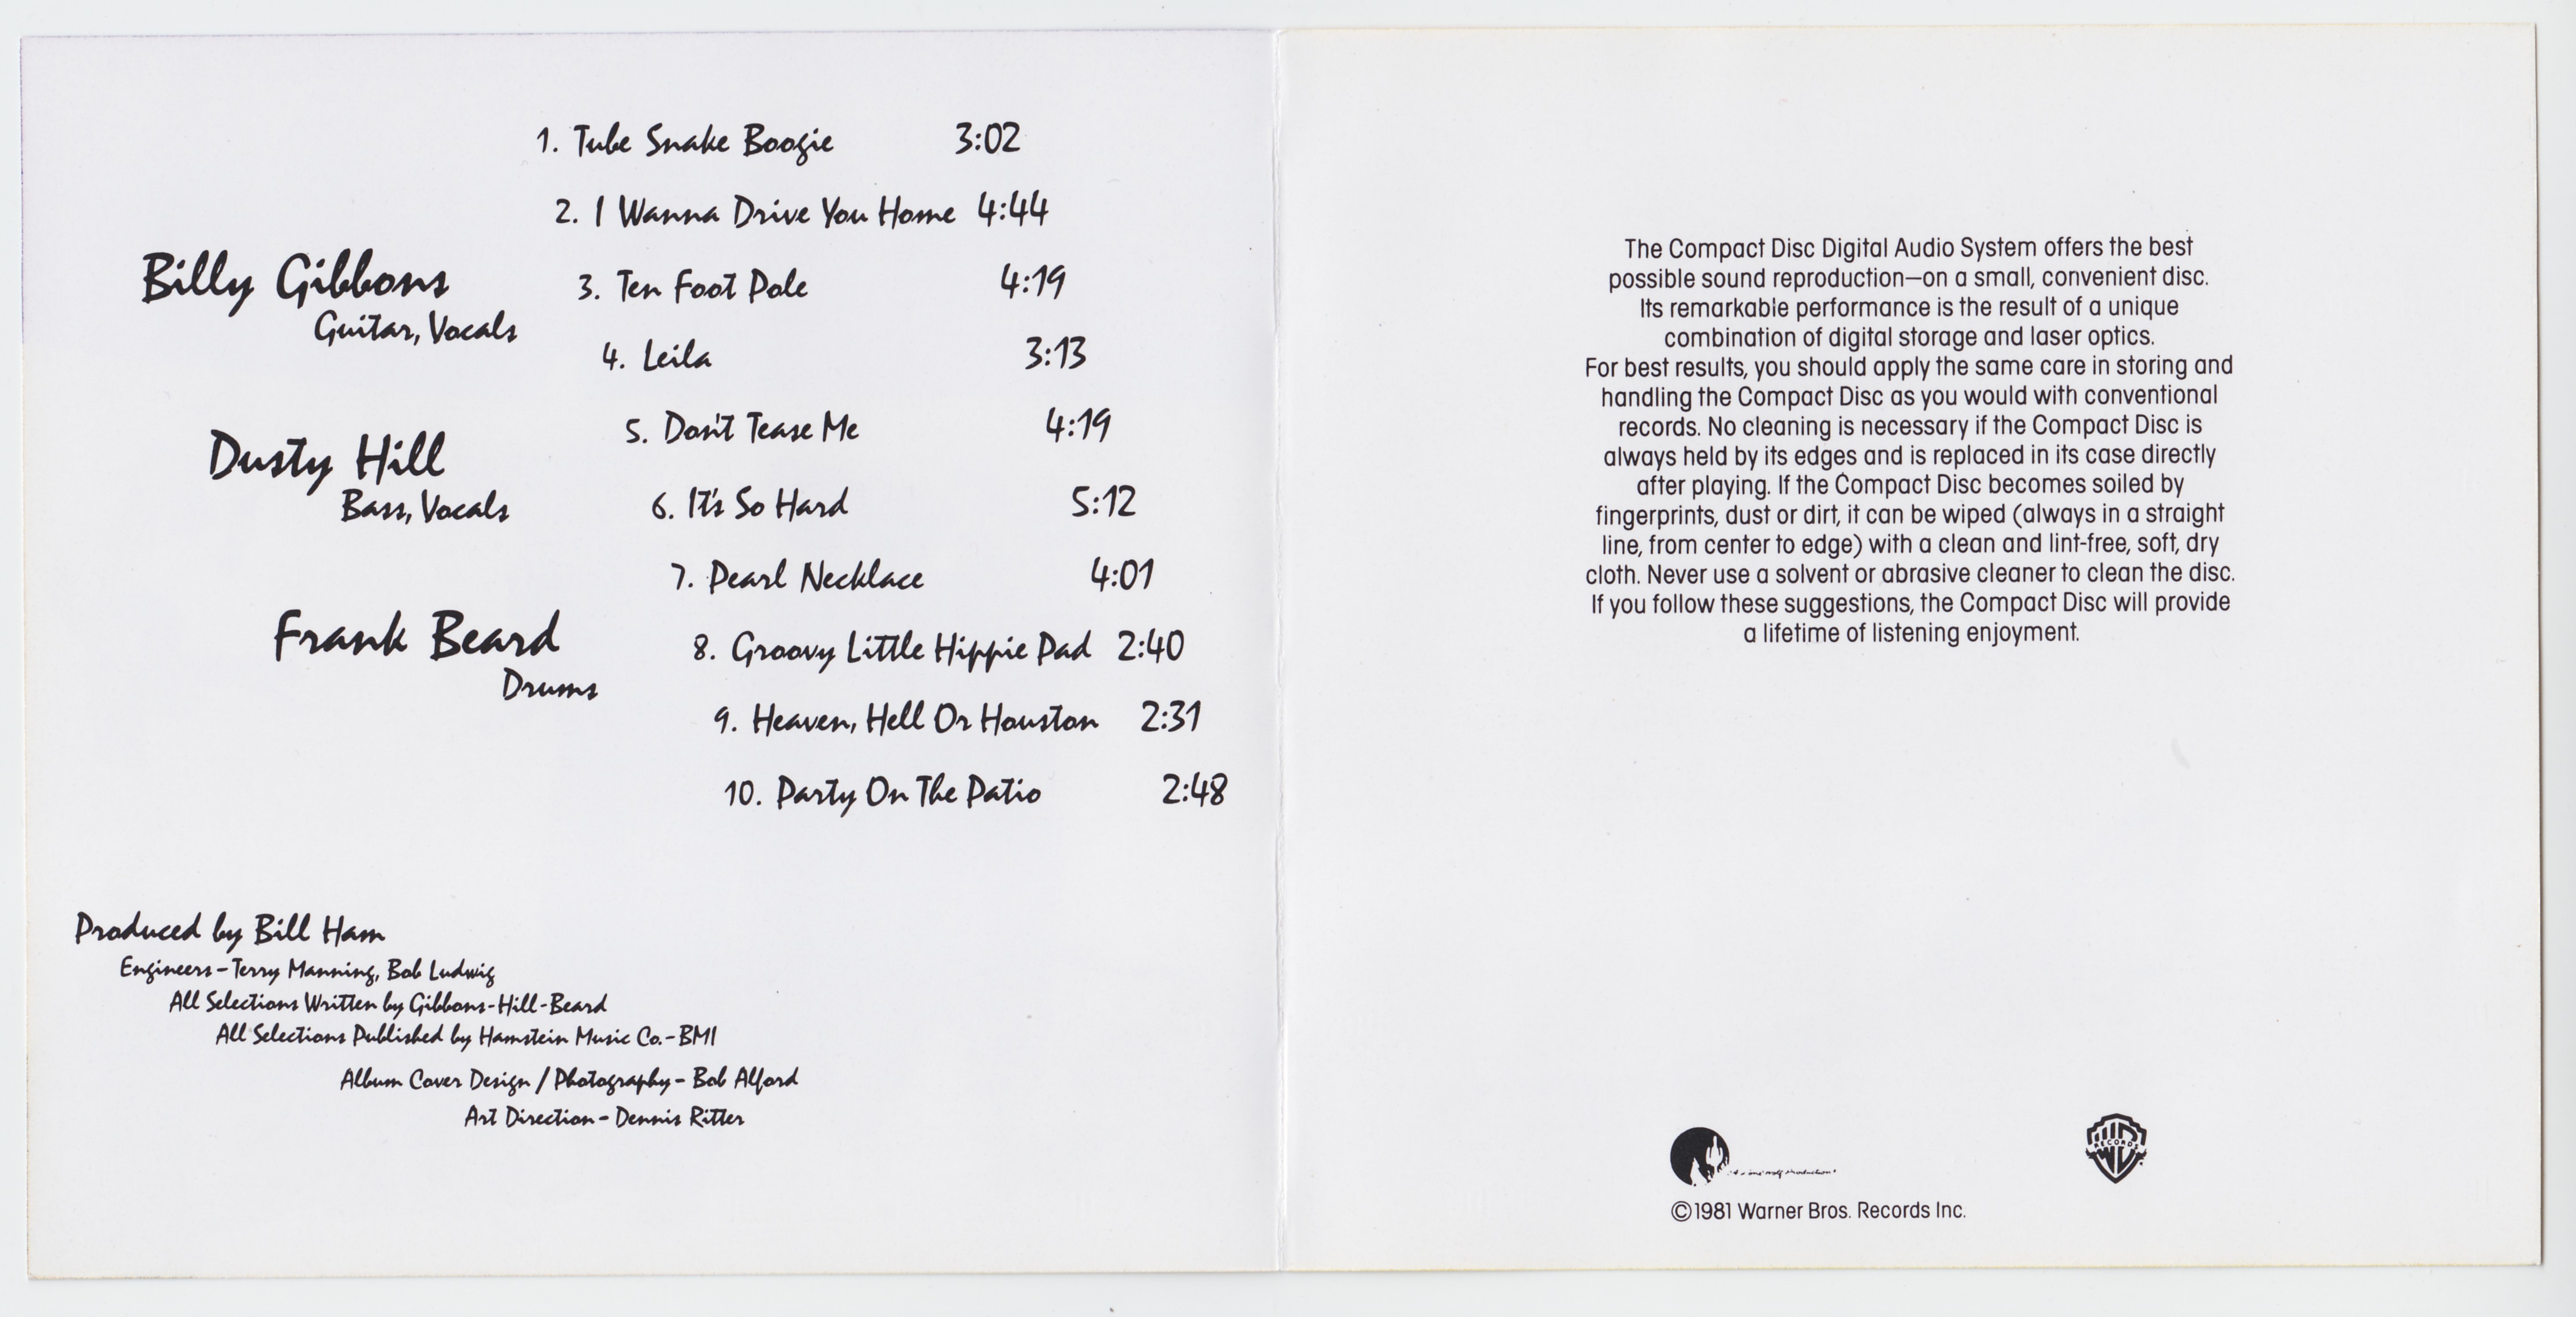 1. Tube Snake Boogie 3:02
2. I Wanna Drive You Home 4:44
3. Ten Foot Pole 4:19
4. Leila 3:13
5. Don't Tease Me 4:19
6. It's So Hard 5:12
7. Pearl Necklace 4:01
8. Groovy Little Hippie Pad 2:40
9. Heaven, Hell Or Houston 2:31
10. Party On The Patio 2:48
Billy Gibbons
Guitar, Vocals
Dusty Hill
Bass, Vocals
Frank Beard
Drums
Produced by Bill Ham
Engineers - Terry Manning, Bob Ludwig
All Selections Written by Gibbons-Hill-Beard
All Selections Published by Hamstein Music Co.-BMI
Album Cover Design / Photography - Bob Alford
Art Direction - Dennis Ritter
The Compact Disc Digital Audio System offers the best
possible sound reproduction—on a small, convenient disc.
Its remarkable performance is the result of a unique
combination of digital storage and laser optics.
For best results, you should apply the same care in storing and
handling the Compact Disc as you would with conventional
records. No cleaning is necessary if the Compact Disc is
always held by its edges and is replaced in its case directly
after playing. If the Compact Disc becomes soiled by
fingerprints, dust or dirt, it can be wiped (always in a straight
line, from center to edge) with a clean and lint-free, soft, dry
cloth. Never use a solvent or abrasive cleaner to clean the disc.
If you follow these suggestions, the Compact Disc will provide
a lifetime of listening enjoyment.
RECORDS
©1981 Warner Bros. Records Inc.